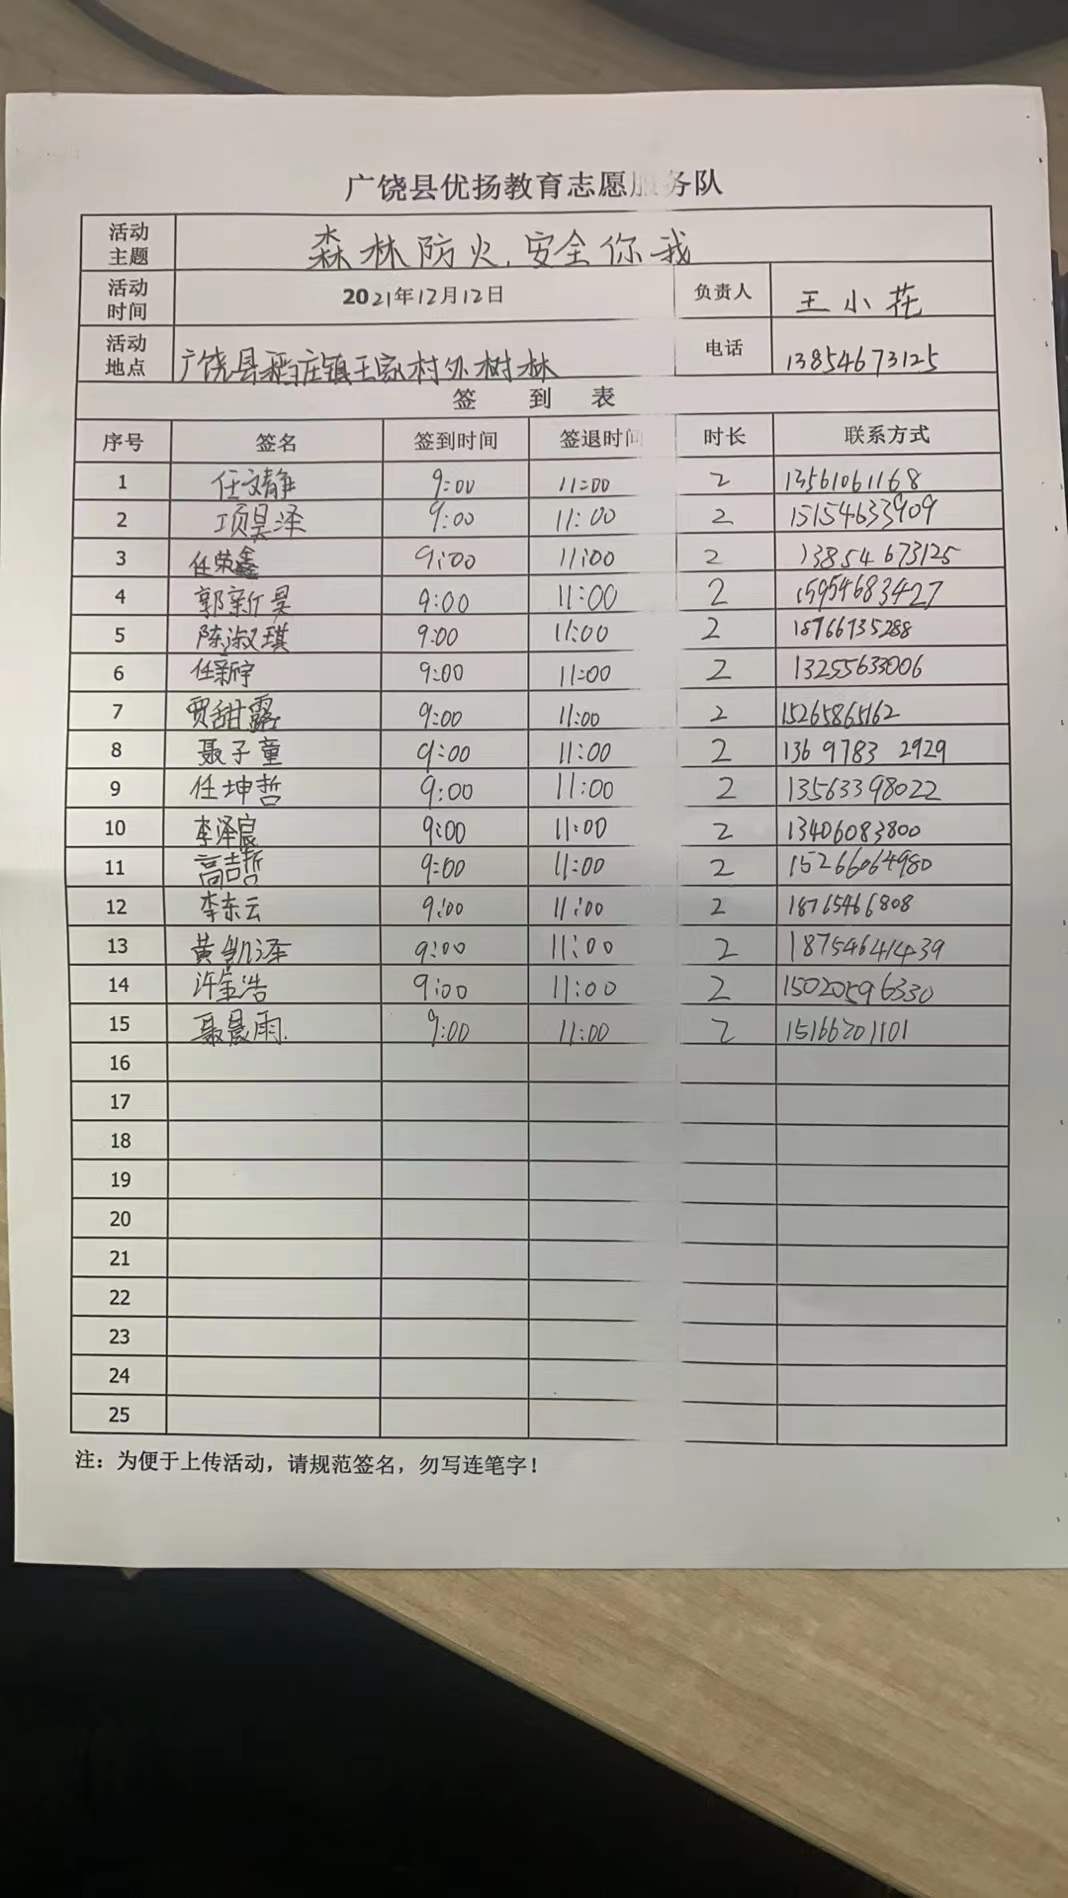 广饶县优扬教育志愿服务队
活动主题 森林防火,安全你我
活动时间 2021年12月12日 负责人 王小花
活动地点 广饶县稻庄镇王家村外树林 电话 13854673125
签 到 表
序号 签名 签到时间 签退时间 时长 联系方式
1 任文静 9:00 11:00 2 13561061168
2 项昊泽 9:00 11:00 2 15154633909
3 任荣鑫 9:00 11:00 2 13854673125
4 郭新昊 9:00 11:00 2 15954683427
5 陈淑琪 9:00 11:00 2 18766735288
6 任新宇 9:00 11:00 2 13255633006
7 贾甜露 9:00 11:00 2 15265865162
8 聂子童 9:00 11:00 2 136 9783 2929
9 任坤哲 9:00 11:00 2 13563398022
10 李泽宸 9:00 11:00 2 13406083800
11 高吉哲 9:00 11:00 2 15266064980
12 李东云 9:00 11:00 2 18765466808
13 黄凯泽 9:00 11:00 2 18754641439
14 许金浩 9:00 11:00 2 15020596330
15 聂晨雨 9:00 11:00 2 15166201101
16
17
18
19
20
21
22
23
24
25
注：为便于上传活动，请规范签名，勿写连笔字！